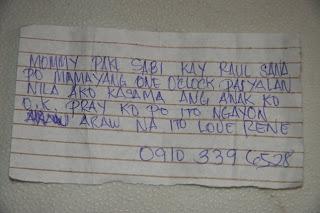 MOMMY PAKI SABI KAY RAUL SANA
PO MAMAYANG ONE O'CLOCK PASYALAN
NILA AKO KASAMA ANG ANAK KO
O.K. PRAY KO PO ITO NGAYON
ARAW NA ITO LOVE RENE
0910 339 6528